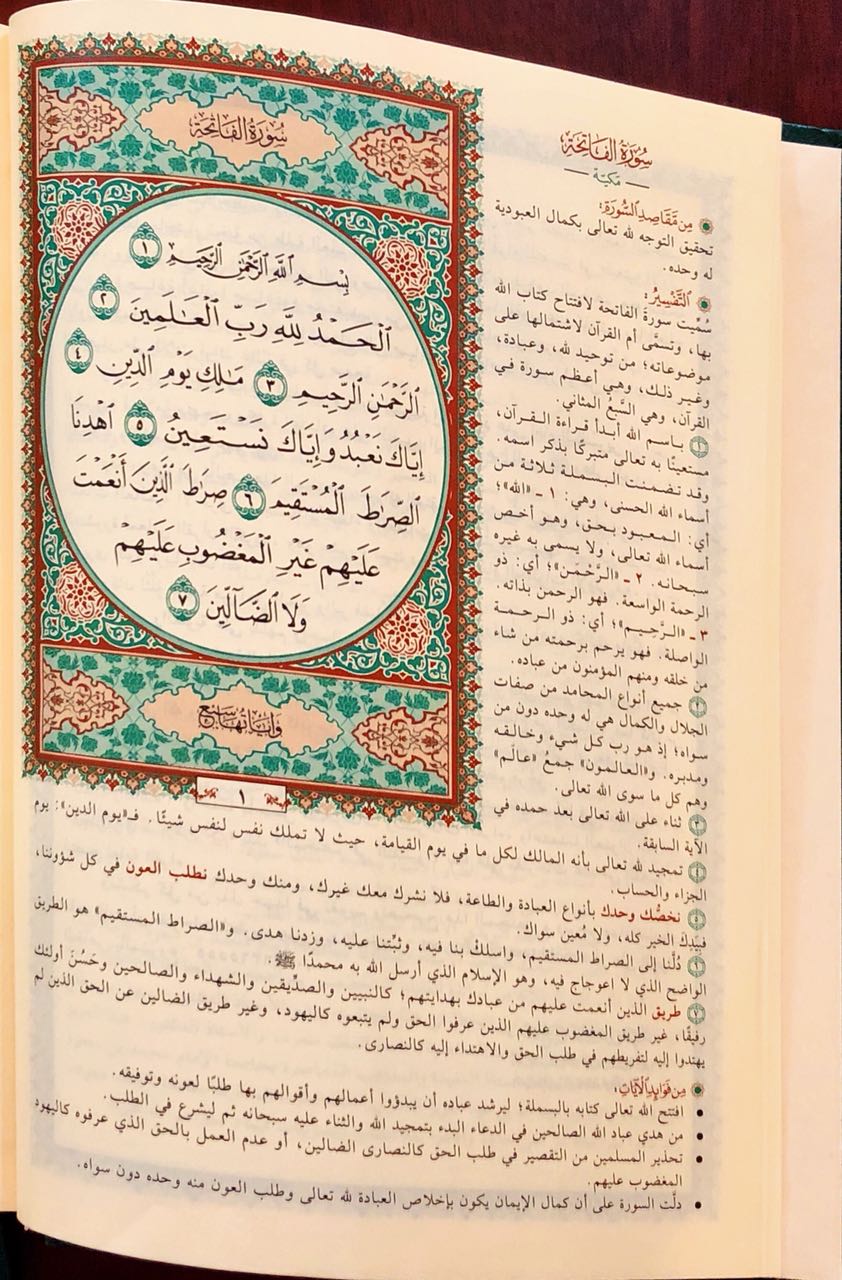 سُورَةُ الفَاتِحَةِ
بِسْمِ اللَّهِ الرَّحْمَٰنِ الرَّحِيمِ ١
الْحَمْدُ لِلَّهِ رَبِّ الْعَالَمِينَ ٢
الرَّحْمَٰنِ الرَّحِيمِ ٣ مَالِكِ يَوْمِ الدِّينِ ٤
إِيَّاكَ نَعْبُدُ وَإِيَّاكَ نَسْتَعِينُ ٥ اهْدِنَا
الصِّرَاطَ الْمُسْتَقِيمَ ٦ صِرَاطَ الَّذِينَ أَنْعَمْتَ
عَلَيْهِمْ غَيْرِ الْمَغْضُوبِ عَلَيْهِمْ
وَلَا الضَّالِّينَ ٧
وَآيَاتُهَا سَبْعٌ
١
سُورَةُ الفَاتِحَةِ
— مَكيّة —
مِن مَّقَاصِدِ السُّورَةِ:
تحقيق التوجه لله تعالى بكمال العبودية
له وحده.
التَّفْسِيرُ:
سُمِّيت سورةَ الفاتحة لافتتاح كتاب الله
بها، وتسمَّى أم القرآن لاشتمالها على
موضوعاته؛ من توحيد لله، وعبادة،
وغير ذلك، وهي أعظم سورة في
القرآن، وهي السَّبعُ المثاني.
١ باسم الله أبدأ قراءة القرآن،
مستعينًا به تعالى متبركًا بذكر اسمه.
وقد تضمنت البسملة ثلاثة من
أسماء الله الحسنى، وهي: ١ ـ «الله»؛
أي: المعبود بحق، وهو أخص
أسماء الله تعالى، ولا يسمى به غيره
سبحانه. ٢ ـ «الرَّحْمَن»؛ أي: ذو
الرحمة الواسعة. فهو الرحمن بذاته.
٣ ـ «الرَّحِيم»؛ أي: ذو الرحمة
الواصلة. فهو يرحم برحمته من شاء
من خلقه ومنهم المؤمنون من عباده.
٢ جميع أنواع المحامد من صفات
الجلال والكمال هي له وحده دون من
سواه؛ إذ هو رب كل شيء وخالقه
ومدبره. و«العالمون» جمعُ «عالَم»
وهم كل ما سوى الله تعالى.
٣ ثناء على الله تعالى بعد حمده في
الآية السابقة.
٤ تمجيد لله تعالى بأنه المالك لكل ما في يوم القيامة، حيث لا تملك نفس لنفس شيئًا. فـ«يوم الدين»: يوم
الجزاء والحساب.
٥ نخصُّك وحدك بأنواع العبادة والطاعة، فلا نشرك معك غيرك، ومنك وحدك نطلب العون في كل شؤوننا،
فبيَدِكَ الخير كله، ولا مُعين سواك.
٦ دُلَّنا إلى الصراط المستقيم، واسلك بنا فيه، وثبِّتنا عليه، وزدنا هدى. و«الصراط المستقيم» هو الطريق
الواضح الذي لا اعوجاج فيه، وهو الإسلام الذي أرسل الله به محمدًا ﷺ.
٧ طريق الذين أنعمت عليهم من عبادك بهدايتهم؛ كالنبيين والصدِّيقين والشهداء والصالحين وحَسُنَ أولئك
رفيقًا، غير طريق المغضوب عليهم الذين عرفوا الحق ولم يتبعوه كاليهود، وغير طريق الضالين عن الحق الذين لم
يهتدوا إليه لتفريطهم في طلب الحق والاهتداء إليه كالنصارى.
مِن فَوَائِدِ الآيَاتِ:
• افتتح الله تعالى كتابه بالبسملة؛ ليرشد عباده أن يبدؤوا أعمالهم وأقوالهم بها طلبًا لعونه وتوفيقه.
• من هدي عباد الله الصالحين في الدعاء البدء بتمجيد الله والثناء عليه سبحانه ثم ليشرع في الطلب.
• تحذير المسلمين من التقصير في طلب الحق كالنصارى الضالين، أو عدم العمل بالحق الذي عرفوه كاليهود
المغضوب عليهم.
• دلَّت السورة على أن كمال الإيمان يكون بإخلاص العبادة لله تعالى وطلب العون منه وحده دون سواه.